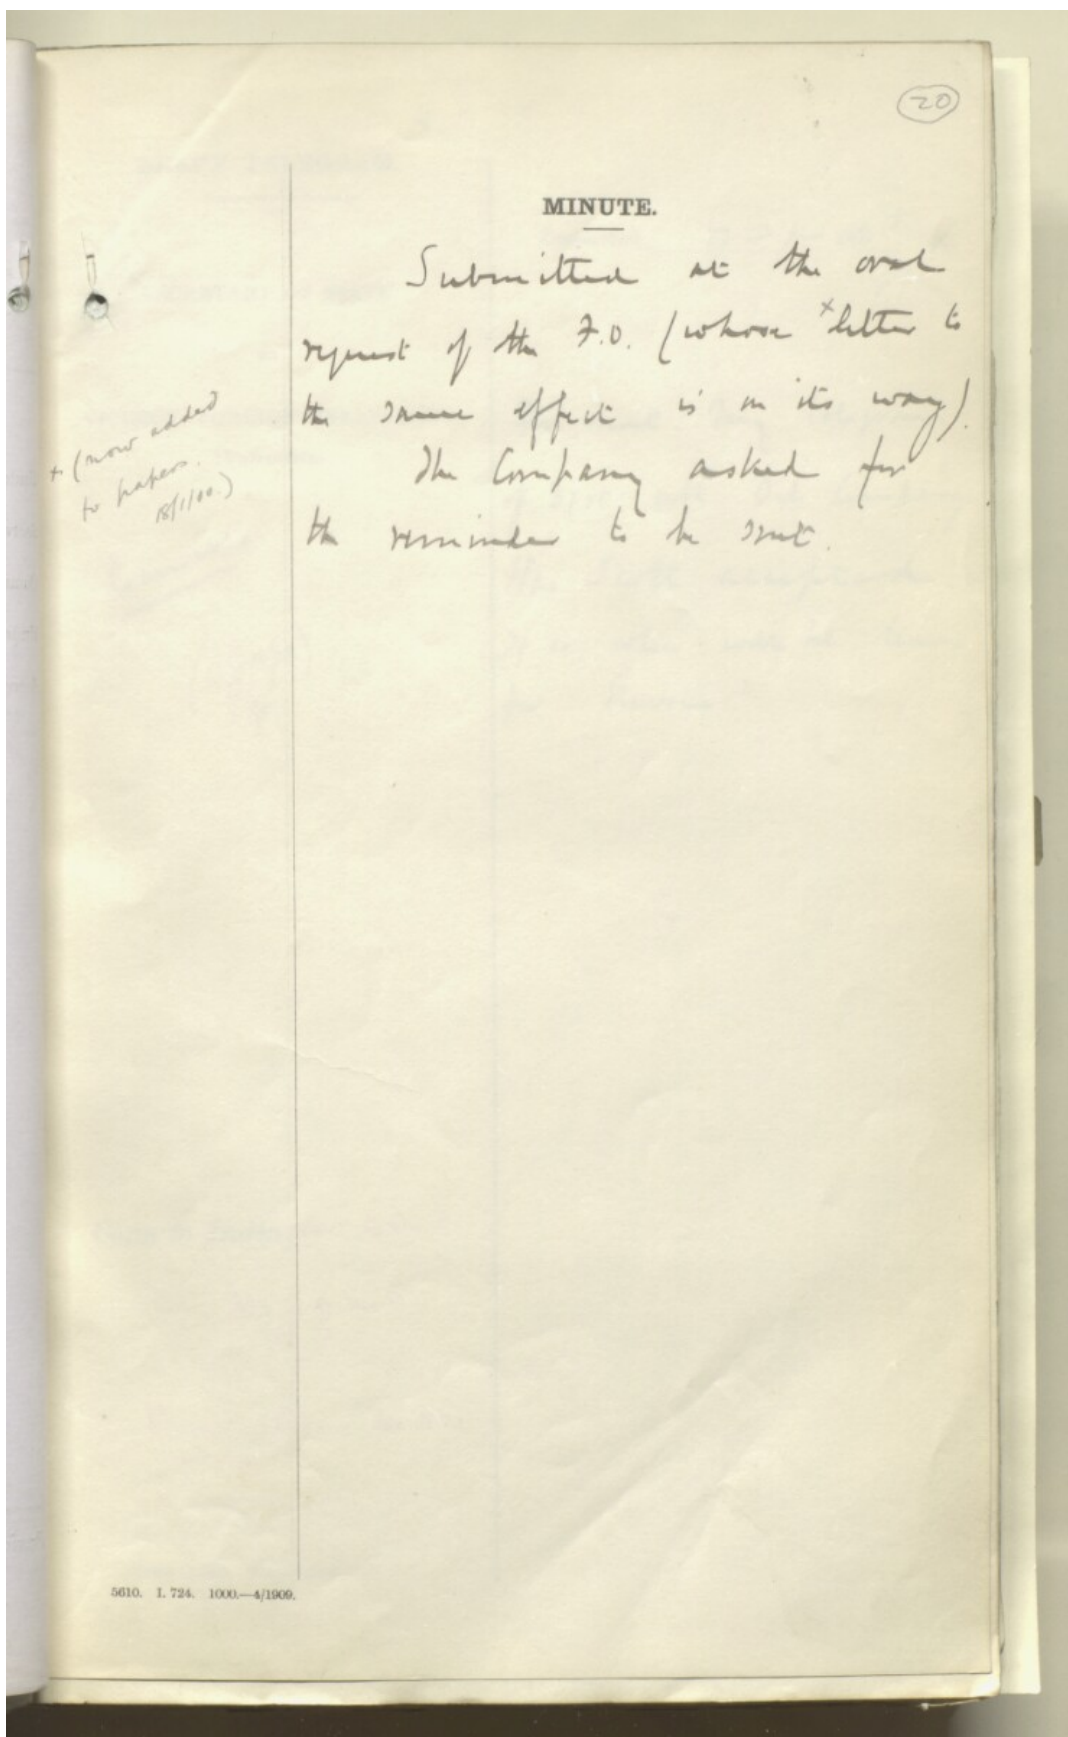 20
MINUTE.
Submitted at the oral
request of the F.O. (whose × letter to
the same effect is on its way).
The Company asked for
the reminder to be sent.
× (now added
to papers.
18/1/10.)
5610. I. 724. 1000.—4/1909.